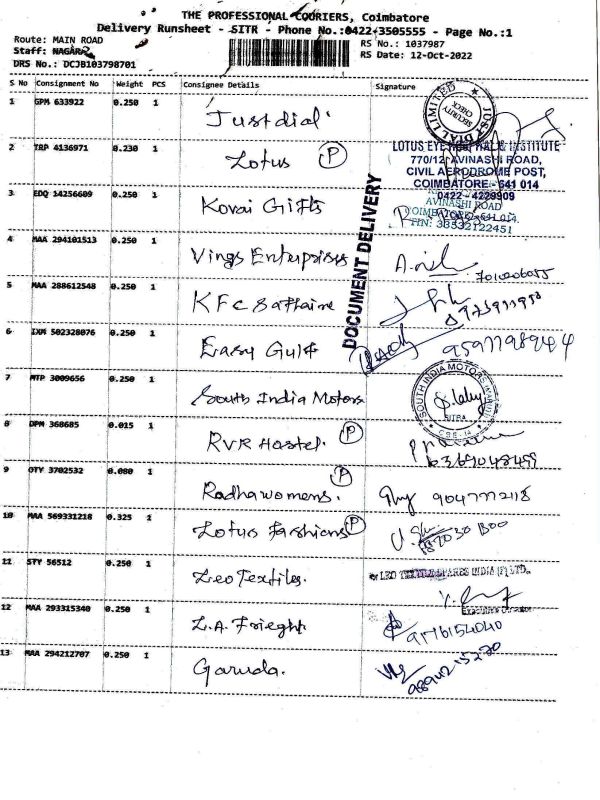 THE PROFESSIONAL COURIERS, Coimbatore
Delivery Runsheet - SITR - Phone No.:0422-3505555 - Page No.:1
Route: MAIN ROAD
Staff: NAGARA
DRS No.: DCJB103798701
RS No.: 1037987
RS Date: 12-Oct-2022
S No Consignment No Weight PCS Consignee Details Signature
1 GPM 633922 0.250 1 Justdial
JUST DIAL LIMITED
SECURITY CHECK
2 TRP 4136971 0.230 1 Lotus P
LOTUS EYE HOSPITAL & INSTITUTE
770/12 AVINASHI ROAD,
CIVIL AERODROME POST,
COIMBATORE - 641 014
0422 - 4229909
3 EDQ 14256609 0.250 1 Kovai Gifts
AVINASHI ROAD
COIMBATORE-641 014.
TIN: 33532122451
DOCUMENT DELIVERY
4 MAA 294101513 0.250 1 Vings Enterprises
5 MAA 288612548 0.250 1 KFC Saffaire
6 IXM 502328076 0.250 1 Easy Gulf
7 MTP 3009656 0.250 1 South India Motors
SOUTH INDIA MOTORS
SITRA
CBE-14
8 DPM 368685 0.015 1 RVR Hostel. P
9 OTY 3702532 0.080 1 Radhawomens. P
9047772118
10 MAA 569331218 0.325 1 Lotus Fashions P
11 STY 56512 0.250 1 Leo Textiles.
LEO TEXTILE SPARES INDIA (P) LTD.
12 MAA 293315340 0.250 1 L.A. Frieght
9176154040
13 MAA 294212707 0.250 1 Garuda.